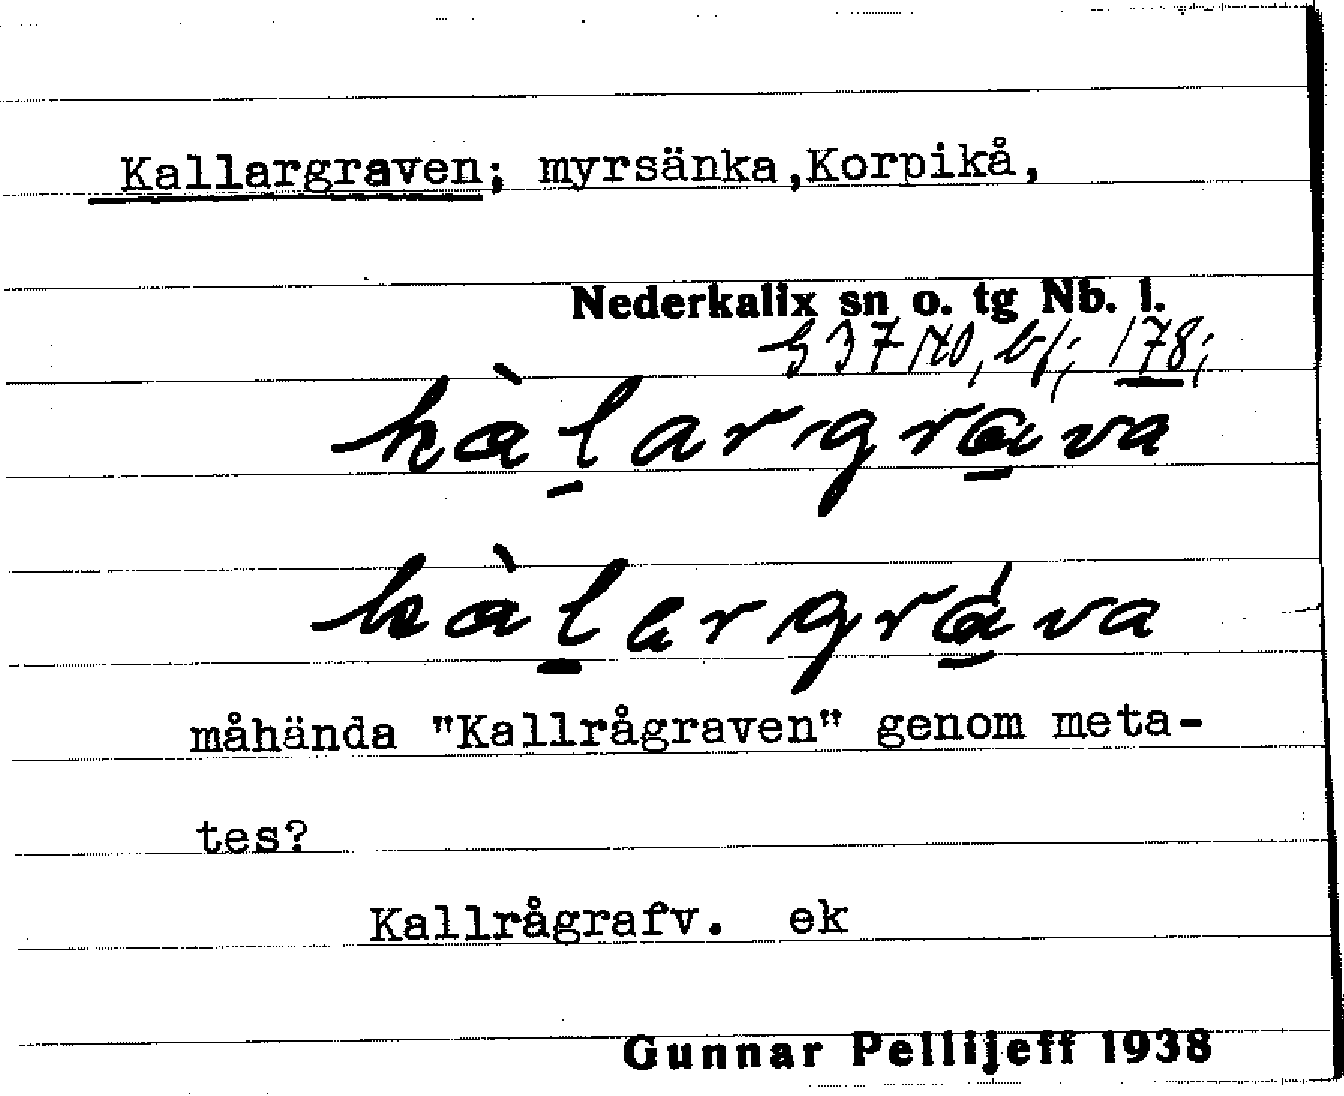 Kallargraven; myrsänka,Korpikå,
Nederkalix sn o. tg Nb. l.
178;
kàlargrava
kàlargráva
måhända "Kallrågraven" genom meta-
tes?
Kallrågrafv. ek
Gunnar Pellijeff 1938